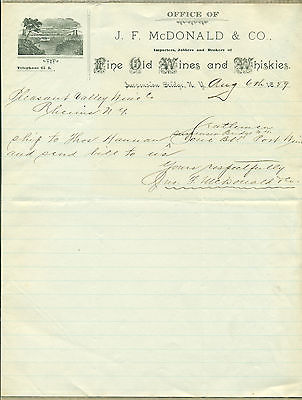 OFFICE OF
J. F. McDONALD & CO.,
Importers, Jobbers and Brokers of
Fine Old Wines and Whiskies.
Telephone
Suspension Bridge, N. Y. Aug 6th 1889
Pleasant Valley Wine Co
Rheims N.Y.
Gentlemen
Suspension Bridge N.Y.
Ship to Thos Hannan one Bbl Port Wine
and send bill to us
Yours respectfully
Jas. F. McDonald & Co